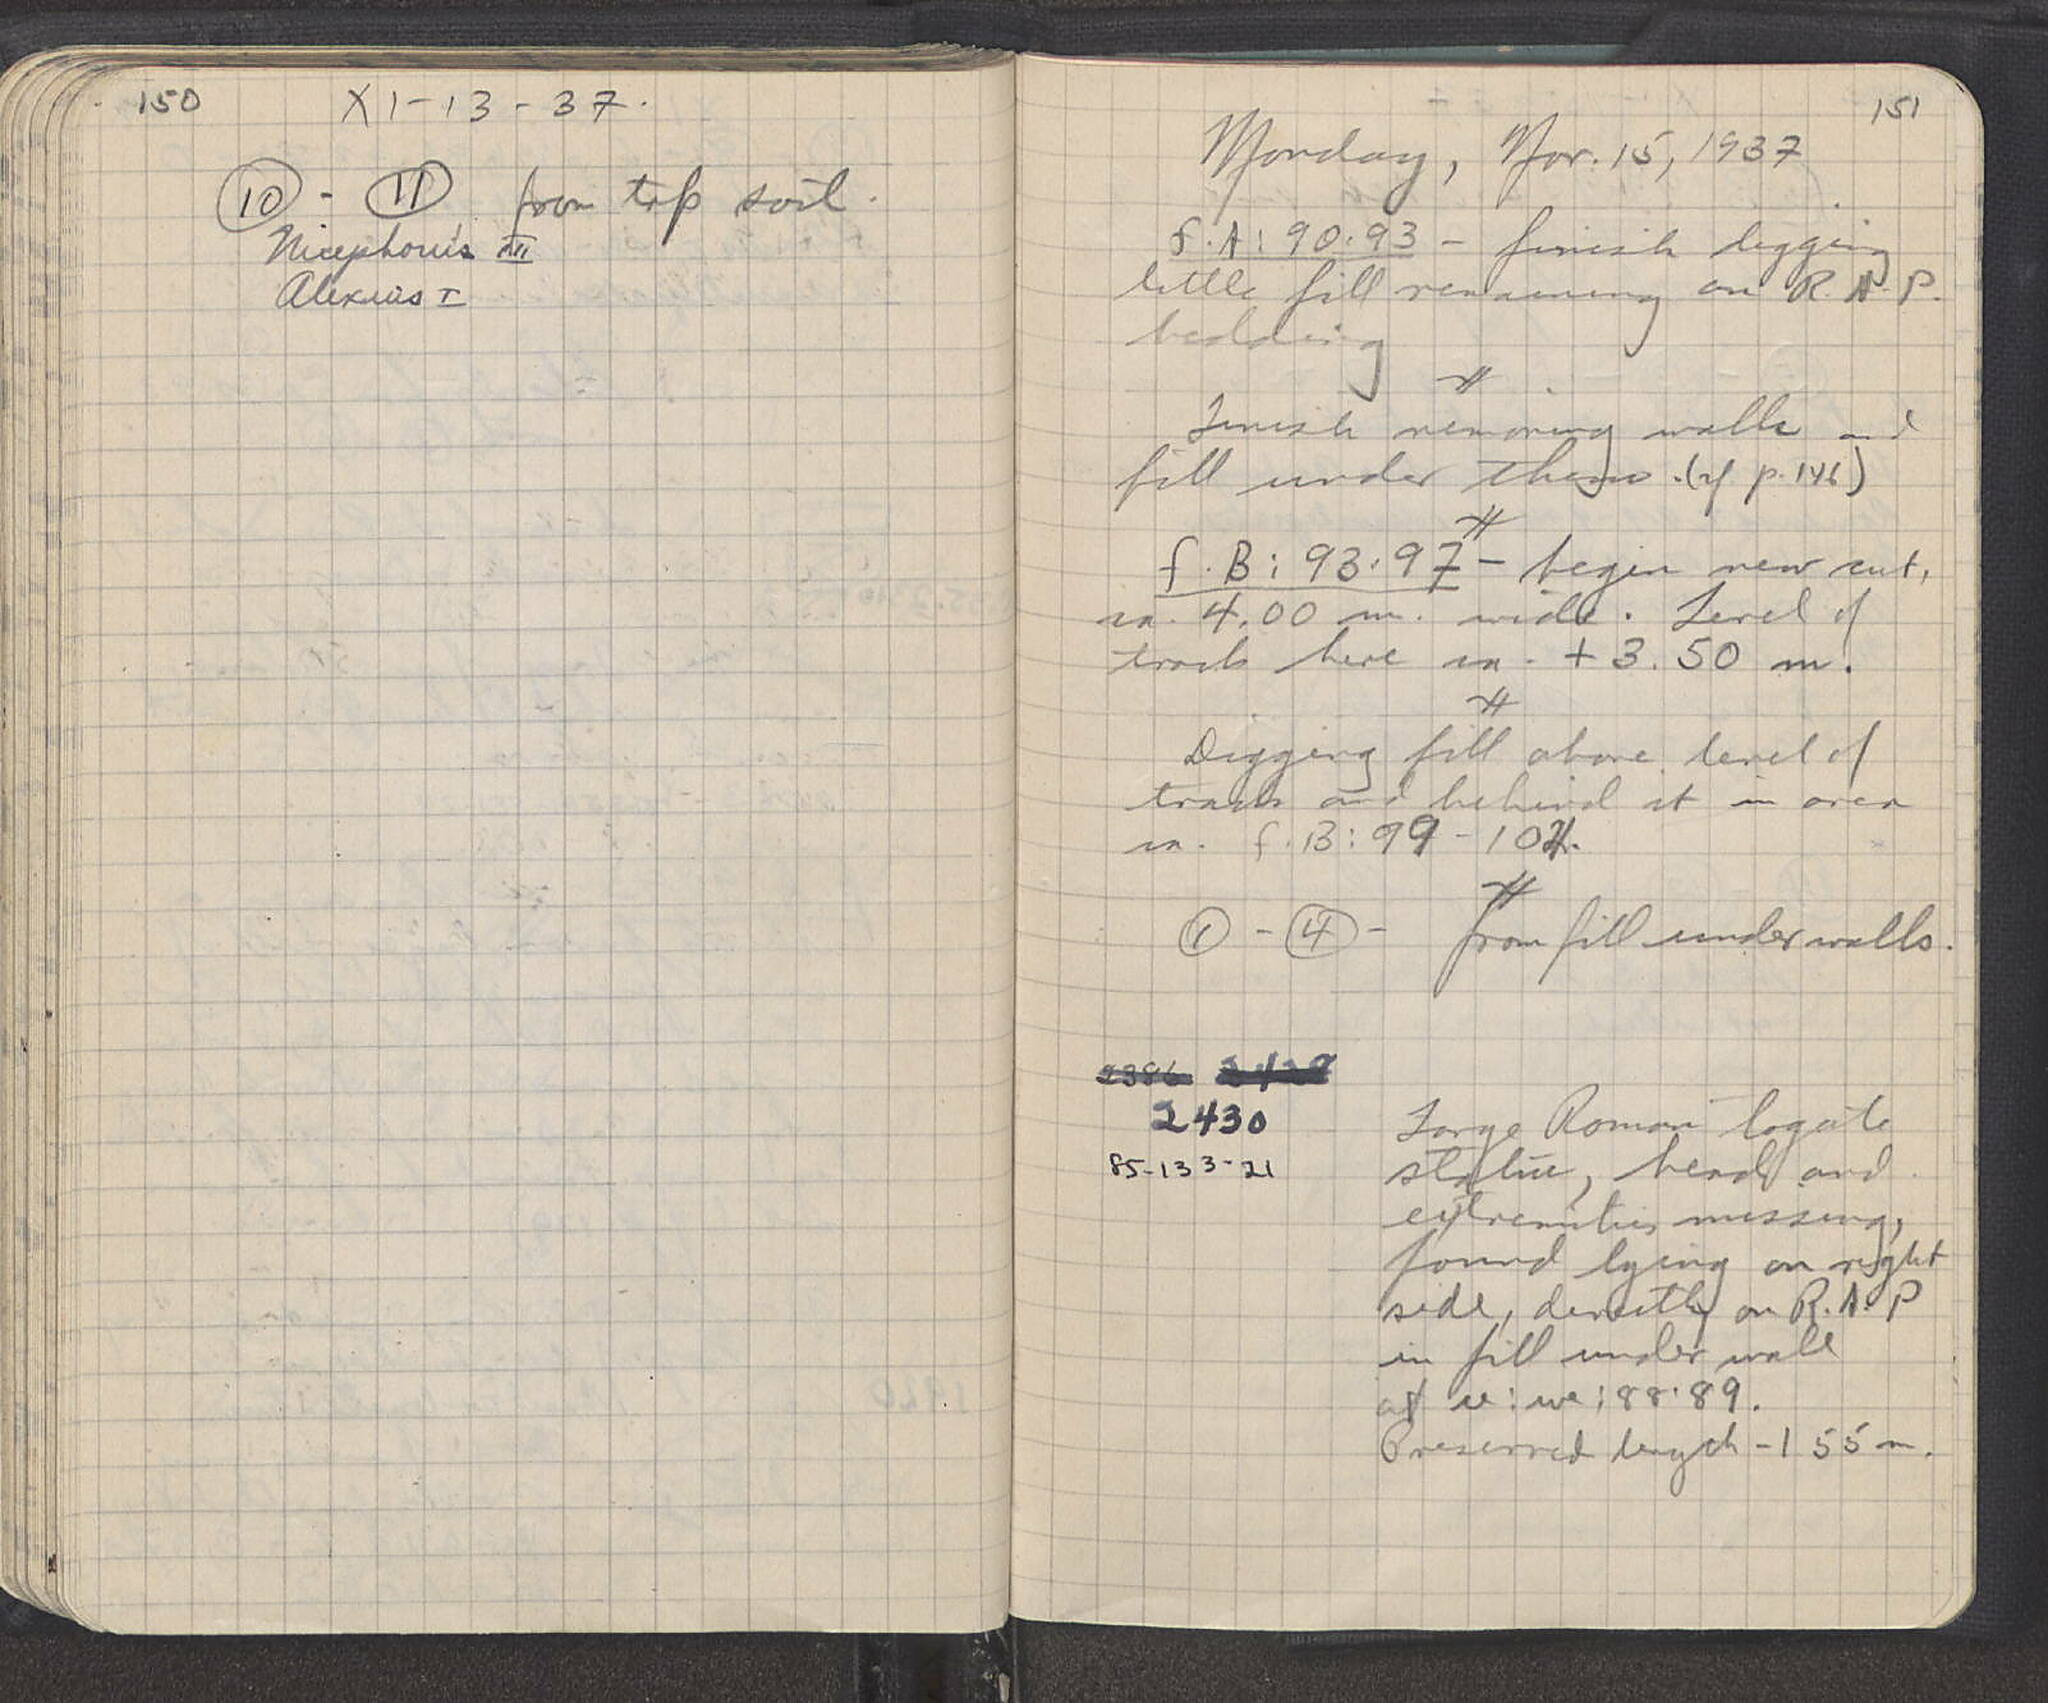 150 XI-13-37.
10 - 11 from top soil.
Nicephorus III
Alexius I
151
Monday, Nov. 15, 1937
f.A:90.93 - finish digging
little fill remaining on R.A.P.
bedding
Finish removing walls and
fill under them. (cf p. 146)
f.B:93.97 - begin new cut,
ca. 4.00 m. wide. Level of
track here ca. +3.50 m.
Digging fill above level of
track and behind it in area
ca. f.B:99-102.
1 - 4 - from fill under walls.
2386
2430
85-133-21
Large Roman togate
statue, head and
extremities missing,
found lying on right
side, directly on R.A.P
in fill under wall
at ue:we:88.89.
Preserved length - 1 55 m.